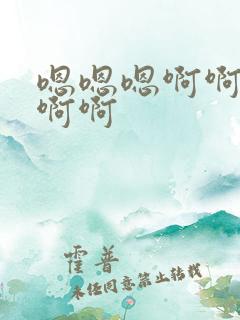 嗯嗯嗯啊啊
啊啊
霍普
未经同意禁止转载